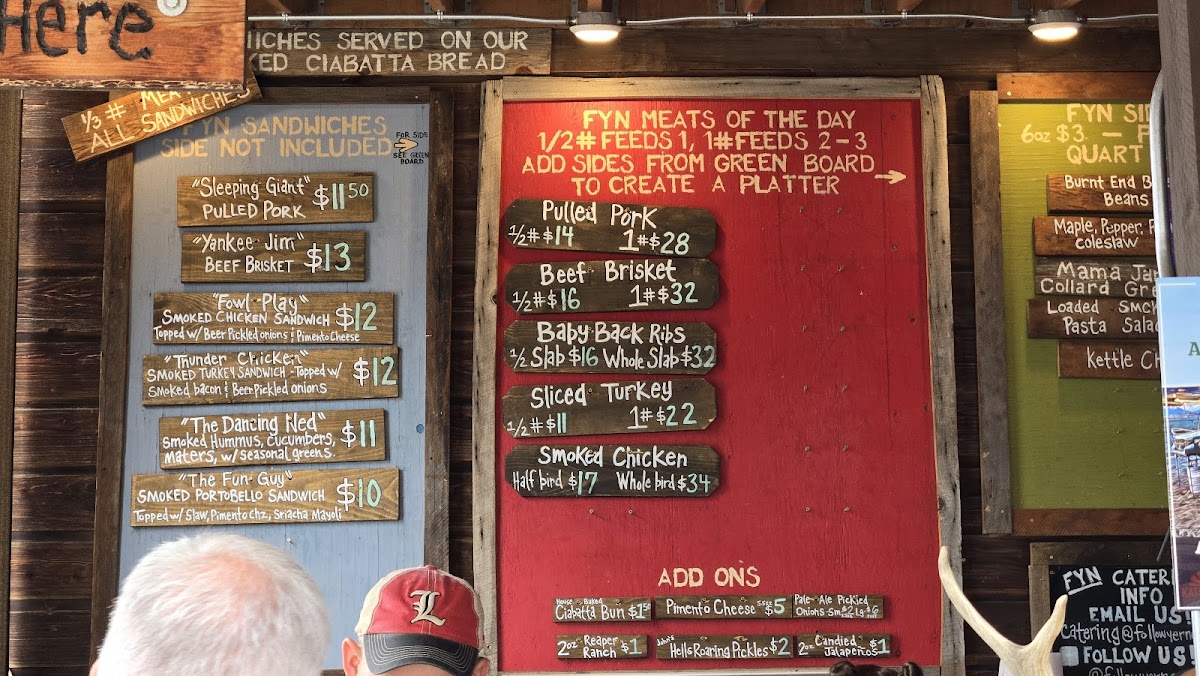 Here
ICHES SERVED ON OUR
KED CIABATTA BREAD
1/3 # MEAT
ALL SANDWICHES
FYN SANDWICHES
SIDE NOT INCLUDED
FOR SIDE
SEE GREEN
BOARD
"Sleeping Giant"
PULLED PORK
$11.50
"Yankee Jim"
BEEF BRISKET
$13
"Fowl Play"
SMOKED CHICKEN SANDWICH
$12
Topped w/ Beer Pickled onions & Pimento Cheese
"Thunder Chicken"
SMOKED TURKEY SANDWICH - Topped w/
Smoked bacon & Beer Pickled onions
$12
"The Dancing Ned"
Smoked Hummus, cucumbers,
maters, w/ seasonal greens
$11
"The Fun Guy"
SMOKED PORTOBELLO SANDWICH
$10
Topped w/ Slaw, Pimento chz, Sriacha Mayoli
FYN MEATS OF THE DAY
1/2 # FEEDS 1, 1# FEEDS 2-3
ADD SIDES FROM GREEN BOARD
TO CREATE A PLATTER
Pulled Pork
1/2# $14 1# $28
Beef Brisket
1/2# $16 1# $32
Baby Back Ribs
1/2 Slab $16 Whole Slab $32
Sliced Turkey
1/2# $11 1# $22
Smoked Chicken
Half bird $17 Whole bird $34
ADD ON'S
House Baked
Ciabatta Bun $1.50
Pimento Cheese $5
Pale Ale Pickled
Onions Sm $2 Lg $6
2oz Reaper
Ranch $1
Hells Roaring Pickles $2
2oz Candied
Jalapeños $1
FYN SI
6oz $3 —
QUART
Burnt End B
Beans
Maple, Pepper,
coleslaw
Mama Ja
Collard Gre
Loaded Smok
Pasta Salad
Kettle Ch
FYN CATER
INFO
EMAIL US!
catering@followyern
FOLLOW US!
L